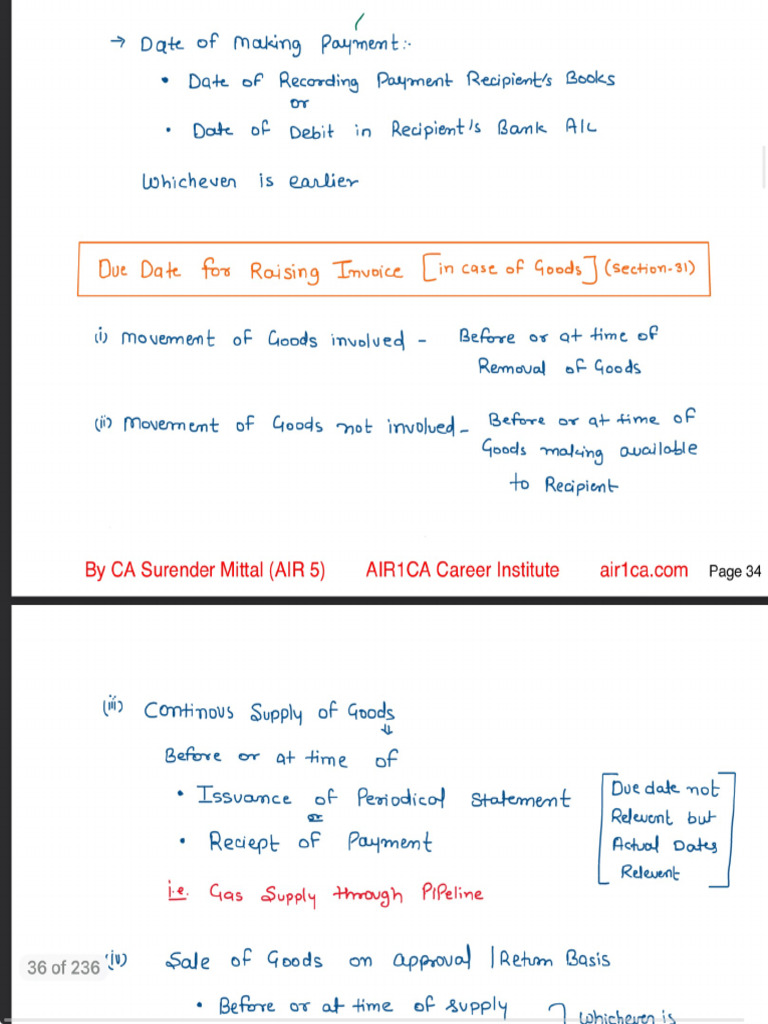 → Date of making Payment:-
• Date of Recording Payment Recipient's Books
or
• Date of Debit in Recipient's Bank A/c
Whichever is earlier
Due Date for Raising Invoice [in case of Goods] (section-31)
(i) movement of Goods involved - Before or at time of
Removal of Goods
(ii) movement of Goods not involved - Before or at time of
Goods making available
to Recipient
By CA Surender Mittal (AIR 5) AIR1CA Career Institute air1ca.com Page 34
(iii) Continous Supply of Goods
⇓
Before or at time of
• Issuance of Periodical Statement
or
• Reciept of Payment
[Due date not
Relevent but
Actual Dates
Relevent]
i.e. Gas Supply through PiPeline
36 of 236
(iv) Sale of Goods on approval / Return Basis
• Before or at time of supply
whichever is